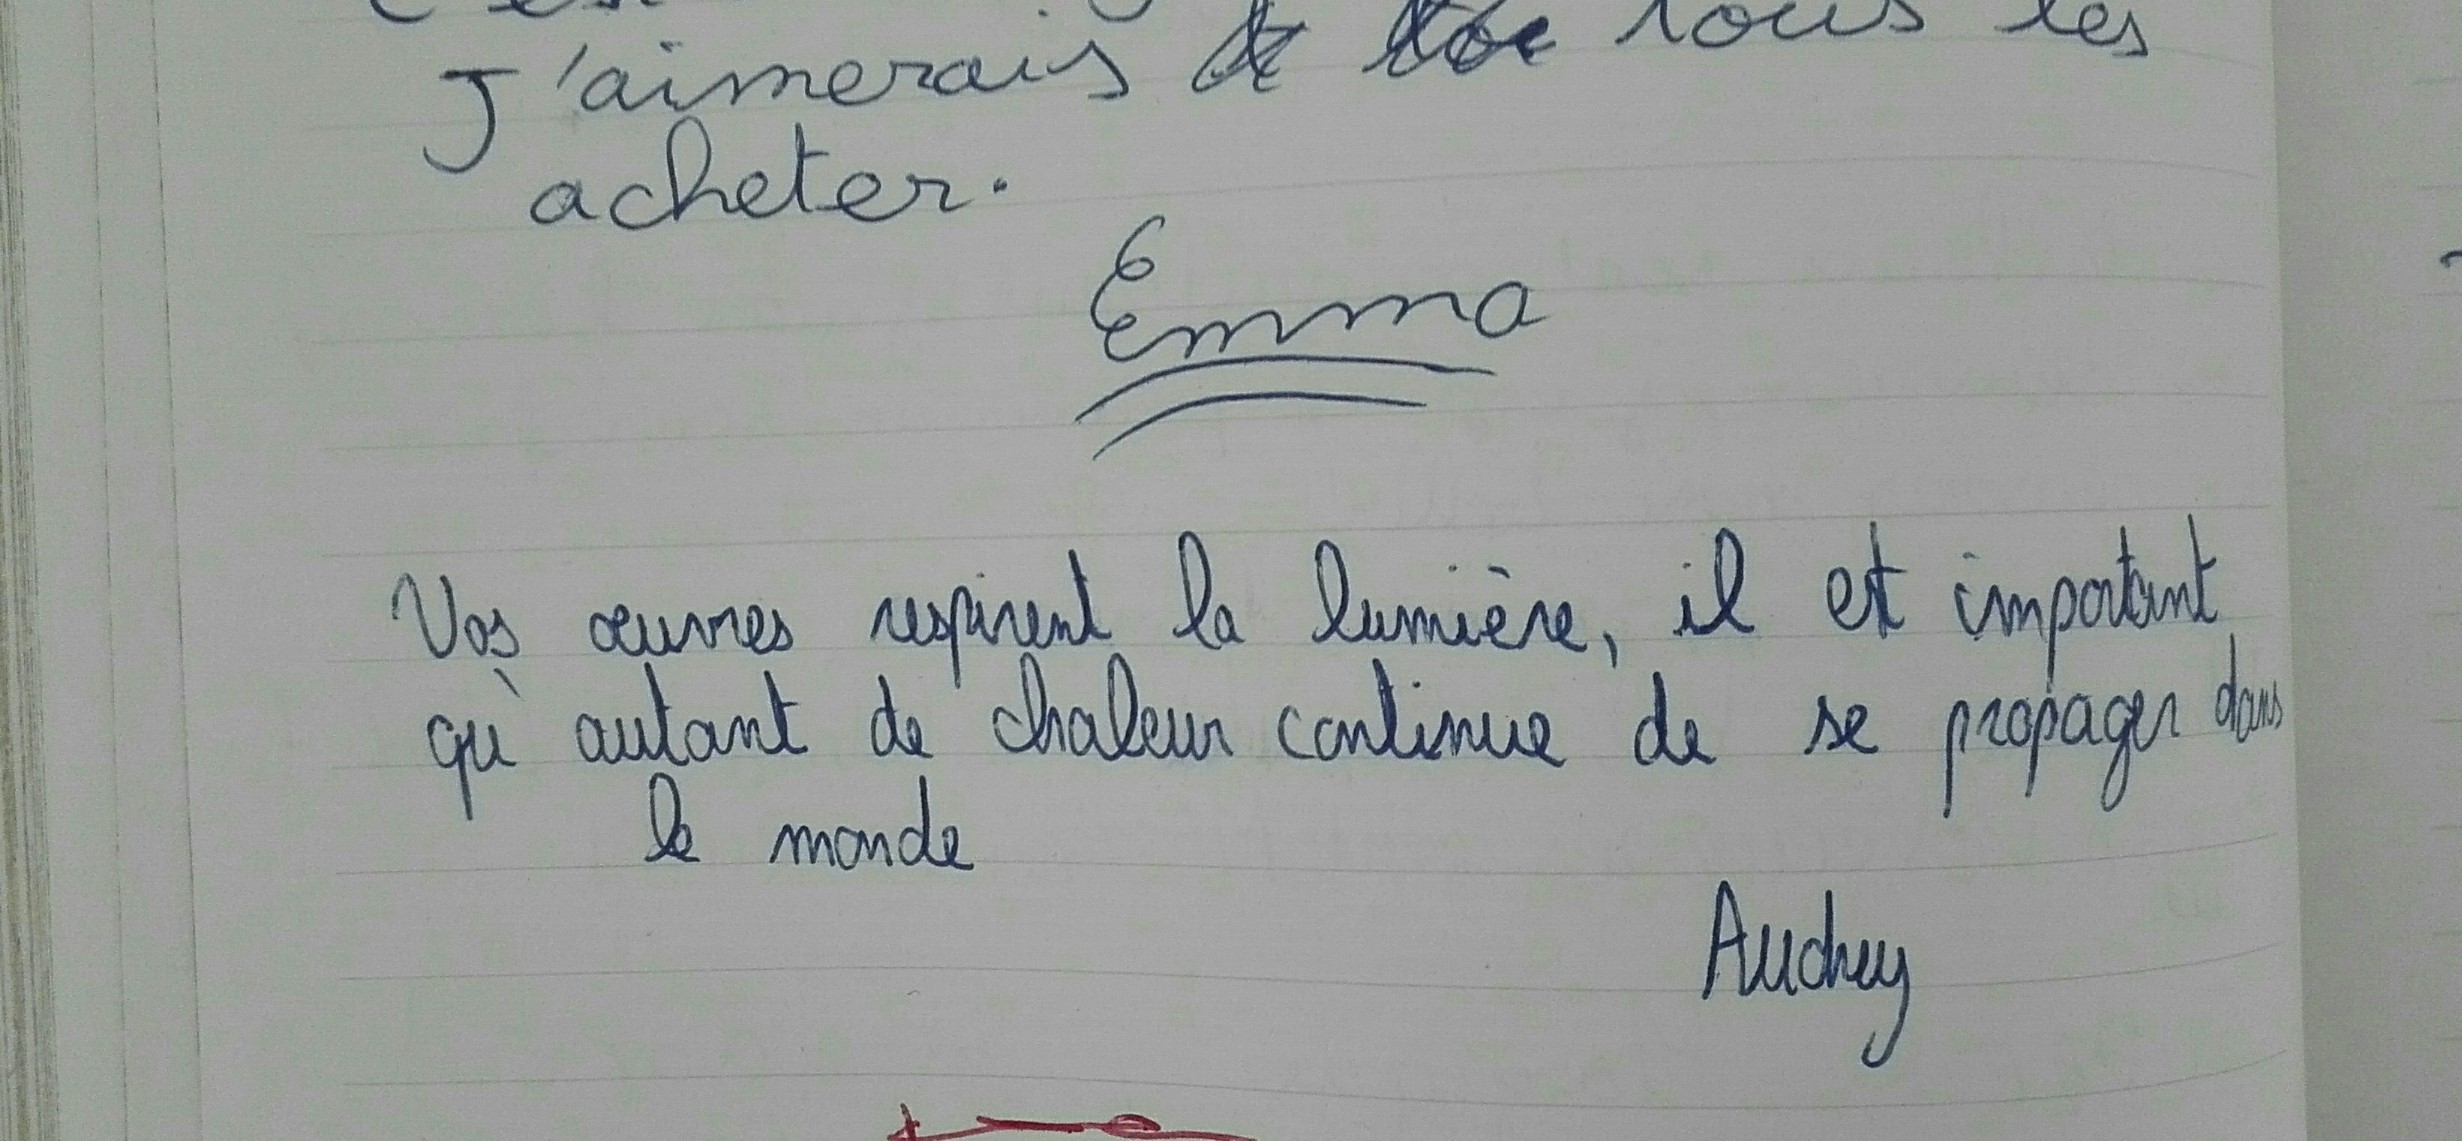 J'aimerais tous les
acheter.
Emma
Vos œuvres respirent la lumière, il est important
qu'autant de chaleur continue de se propager dans
le monde
Audrey